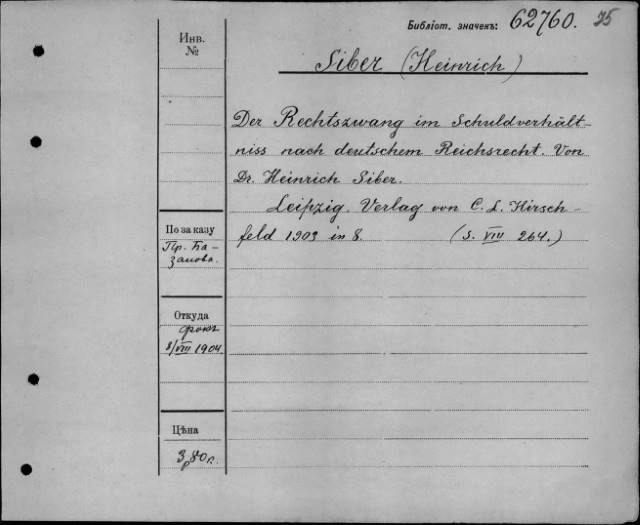 Библіот. значекъ: 62760. 75
Инв.
№
Siber (Heinrich)
Der Rechtszwang im Schuldverhält-
niss nach deutschem Reichsrecht. Von
Dr. Heinrich Siber.
Leipzig. Verlag von C. L. Hirsch-
feld 1903 in 8. (S. VIII 264.)
По заказу
Пр. Ба-
занова.
Откуда
8/VIII 1904
Цѣна
3р80к.